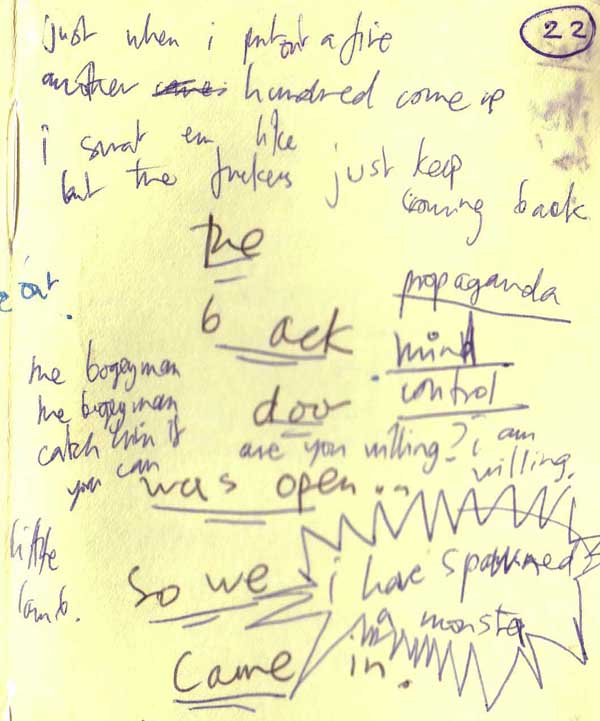 22
just when i put out a fire
another hundred come up
i swat em like
but the fuckers just keep
coming back
the
b ack
door
was open...
so we
came in.
propaganda
mind
control
are you willing? i am
willing.
the bogeyman
the bogeyman
catch him if
you can
little
lamb.
i have spawned
a monster
out.